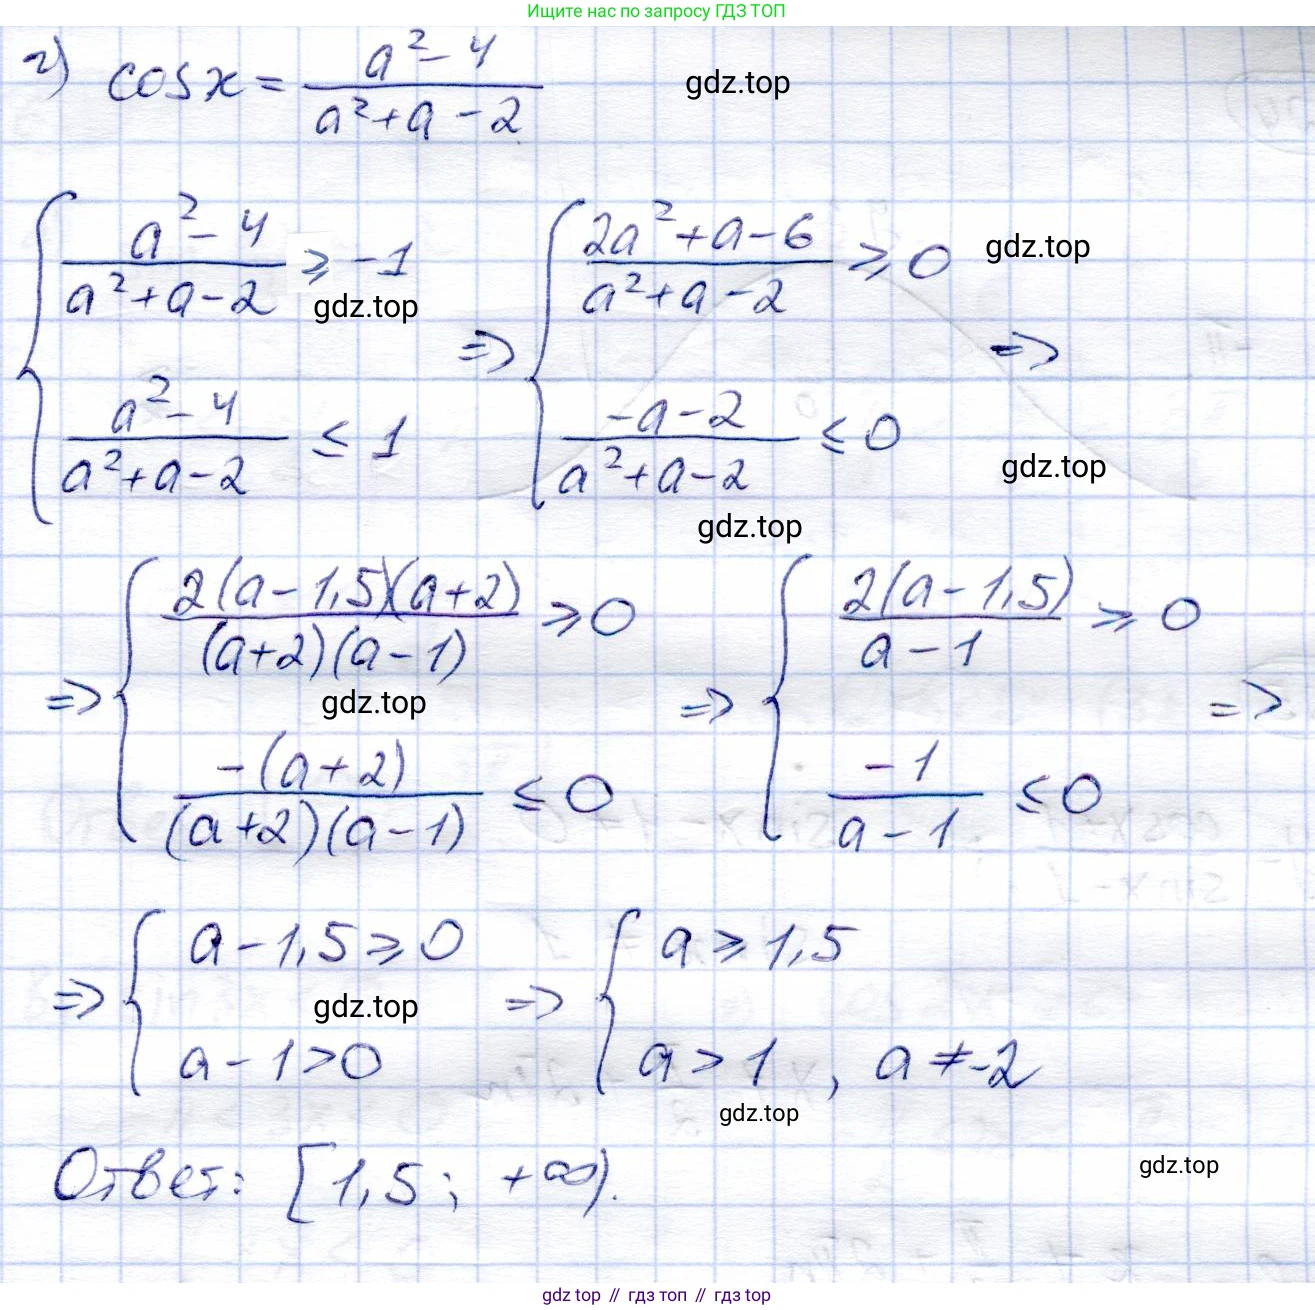 Ищите нас по запросу ГДЗ ТОП
г) cos x = (a² - 4)/(a² + a - 2)
gdz.top
{ (a² - 4)/(a² + a - 2) ⩾ -1 => { (2a² + a - 6)/(a² + a - 2) ⩾ 0 =>
gdz.top
gdz.top
{ (a² - 4)/(a² + a - 2) ≤ 1 { (-a - 2)/(a² + a - 2) ≤ 0
gdz.top
gdz.top
=> { (2(a - 1,5)(a + 2))/((a + 2)(a - 1)) ⩾ 0 => { (2(a - 1,5))/(a - 1) ⩾ 0 =>
gdz.top
{ (-(a + 2))/((a + 2)(a - 1)) ≤ 0 { (-1)/(a - 1) ≤ 0
=> { a - 1,5 ⩾ 0 => { a ⩾ 1,5
gdz.top
{ a - 1 > 0 { a > 1, a ≠ -2
gdz.top
Ответ: [1,5; +∞).
gdz.top
gdz top // гдз топ // гдз top